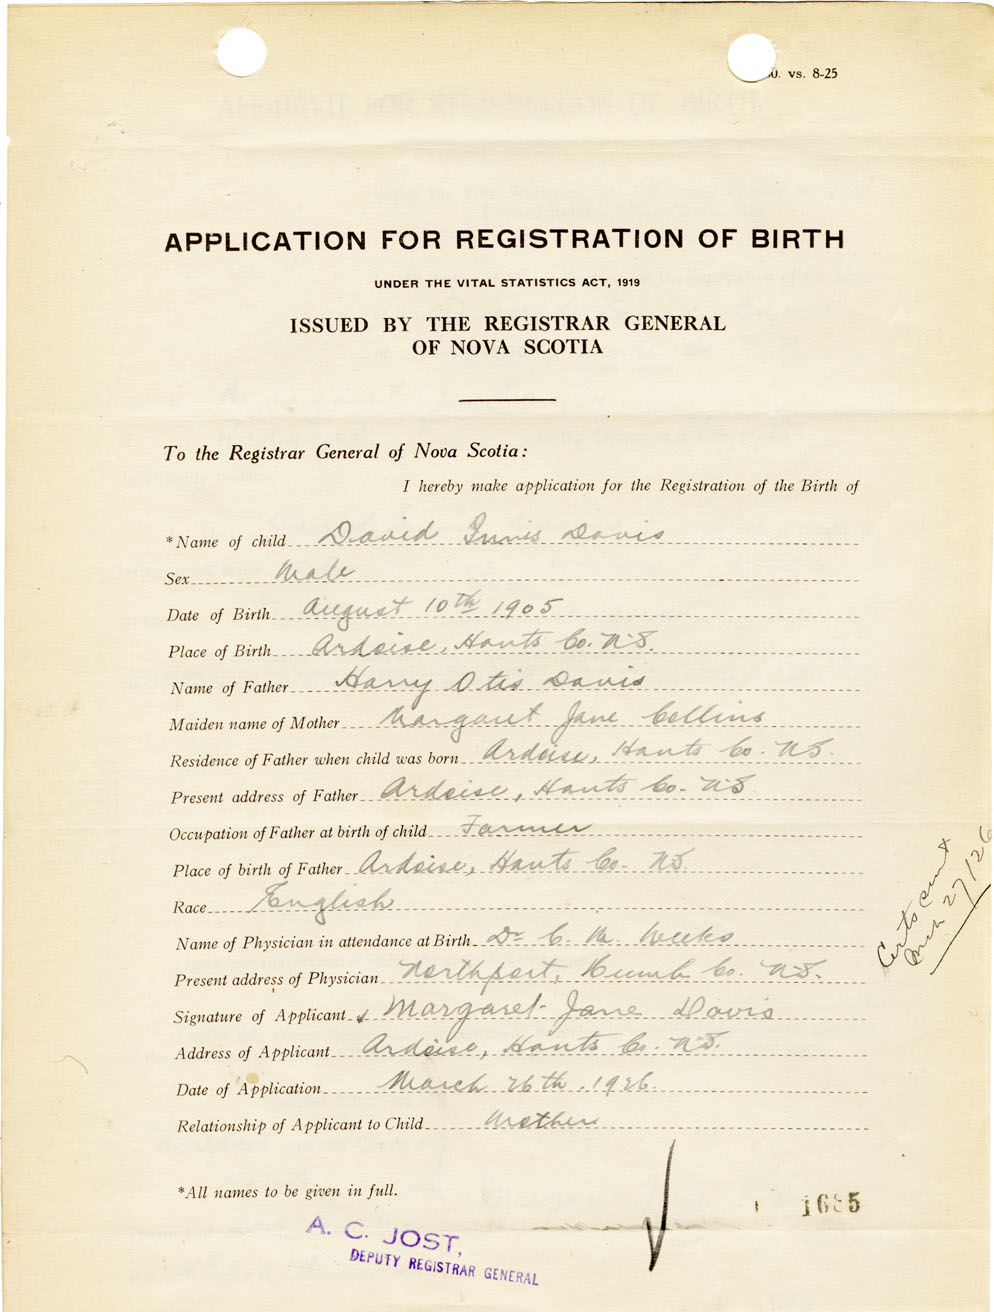 0. vs. 8-25
APPLICATION FOR REGISTRATION OF BIRTH
UNDER THE VITAL STATISTICS ACT, 1919
ISSUED BY THE REGISTRAR GENERAL
OF NOVA SCOTIA
To the Registrar General of Nova Scotia:
I hereby make application for the Registration of the Birth of
*Name of child David Innis Davis
Sex Male
Date of Birth August 10th 1905
Place of Birth Ardoise, Hants Co. N.S.
Name of Father Harry Otis Davis
Maiden name of Mother Margaret Jane Collins
Residence of Father when child was born Ardoise, Hants Co. N.S.
Present address of Father Ardoise, Hants Co. N.S.
Occupation of Father at birth of child Farmer
Place of birth of Father Ardoise, Hants Co. N.S.
Race English
Name of Physician in attendance at Birth Dr C. M. Weeks
Present address of Physician Northport, Cumb Co. N.S.
Signature of Applicant Margaret Jane Davis
Address of Applicant Ardoise, Hants Co. N.S.
Date of Application March 26th. 1926.
Relationship of Applicant to Child Mother
Mch 27/26
*All names to be given in full.
A. C. JOST,
DEPUTY REGISTRAR GENERAL